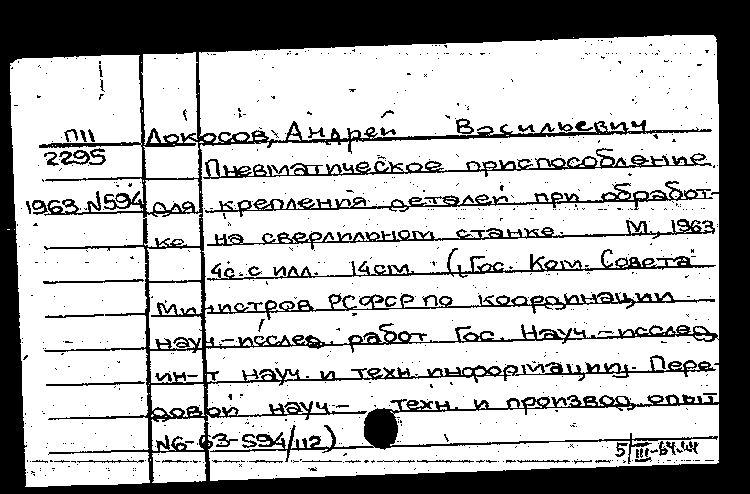 П11 Локосов, Андрей Васильевич
2295 Пневматическое приспособление
1963 N594 для крепления деталей при обработ-
ке на сверлильном станке. М., 1963
4с. с илл. 14см. (Гос. Ком. Совета
Министров РСФСР по координации
науч.-исслед. работ. Гос. Науч.-исслед.
ин-т науч. и техн. информации. Пере-
довой науч.- техн. и производ. опыт
N6-63-594/112)
5/III-64